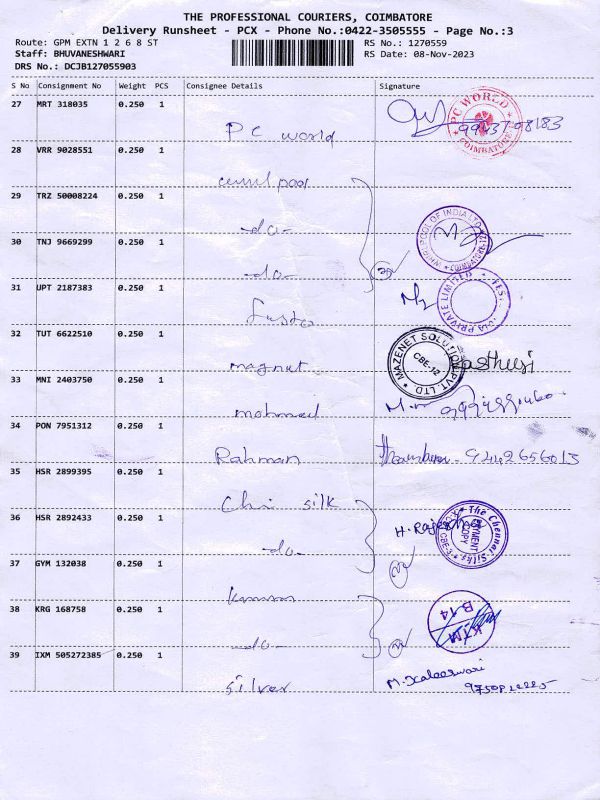 THE PROFESSIONAL COURIERS, COIMBATORE
Delivery Runsheet - PCX - Phone No.:0422-3505555 - Page No.:3
Route: GPM EXTN 1 2 6 8 ST
RS No.: 1270559
Staff: BHUVANESHWARI
RS Date: 08-Nov-2023
DRS No.: DCJB127055903
S No Consignment No Weight PCS Consignee Details Signature
27 MRT 318035 0.250 1
PC world
PC WORLD COIMBATORE
28 VRR 9028551 0.250 1
29 TRZ 50008224 0.250 1
-do-
WHIRLPOOL OF INDIA LTD
30 TNJ 9669299 0.250 1
-do-
31 UPT 2187383 0.250 1
PRIVATE LIMITED
32 TUT 6622510 0.250 1
magnut
MAZENET SOLUTION PVT. LTD
CBE-12
33 MNI 2403750 0.250 1
34 PON 7951312 0.250 1
Rahman
9442656013
35 HSR 2899395 0.250 1
Chi silk
36 HSR 2892433 0.250 1
-do-
H. Rajesh
The Chennai Silks
CBE-
PAYMENT COPY
37 GYM 132038 0.250 1
38 KRG 168758 0.250 1
-do-
KTM
B-14
39 IXM 505272385 0.250 1
silver
M. Kaleeswari